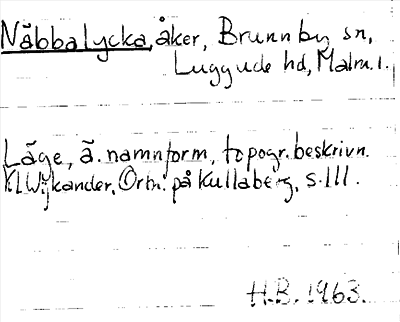 Näbbalycka, åker, Brunnby sn,
Luggude hd, Malm. l.
Läge, ä. namnform, topogr. beskrivn.
K.I.Wijkander, Ortn. på Kullaberg, s. III.
H.B. 1963.